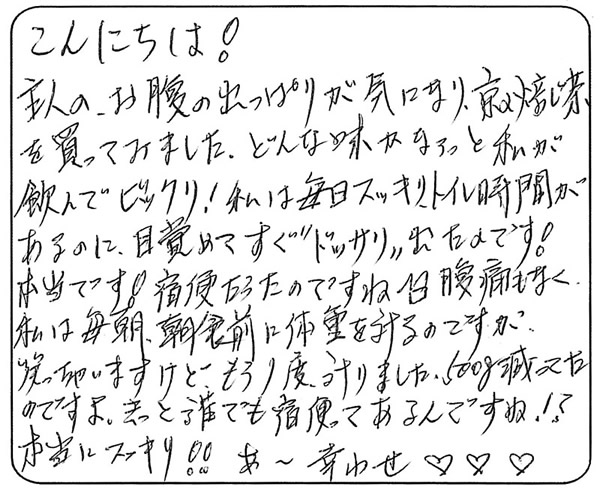 こんにちは!
主人の、お腹の出っぱりが気になり、京の焙じ茶
を買ってみました。どんな味かなぁっと私が
飲んでビックリ!私は毎日スッキリ、トイレ時間が
あるのに、目覚めてすぐ"ドッサリ"出たのです!
本当です!宿便だったのですね 腹痛もなく、
私は毎朝、朝食前に体重を計るのですが、
笑っちゃいますけど、もう1度、計りました。500g減ってた
のですよ。きっと誰でも宿便ってあるんですね!?
本当にスッキリ!! あ〜幸わせ♡♡♡